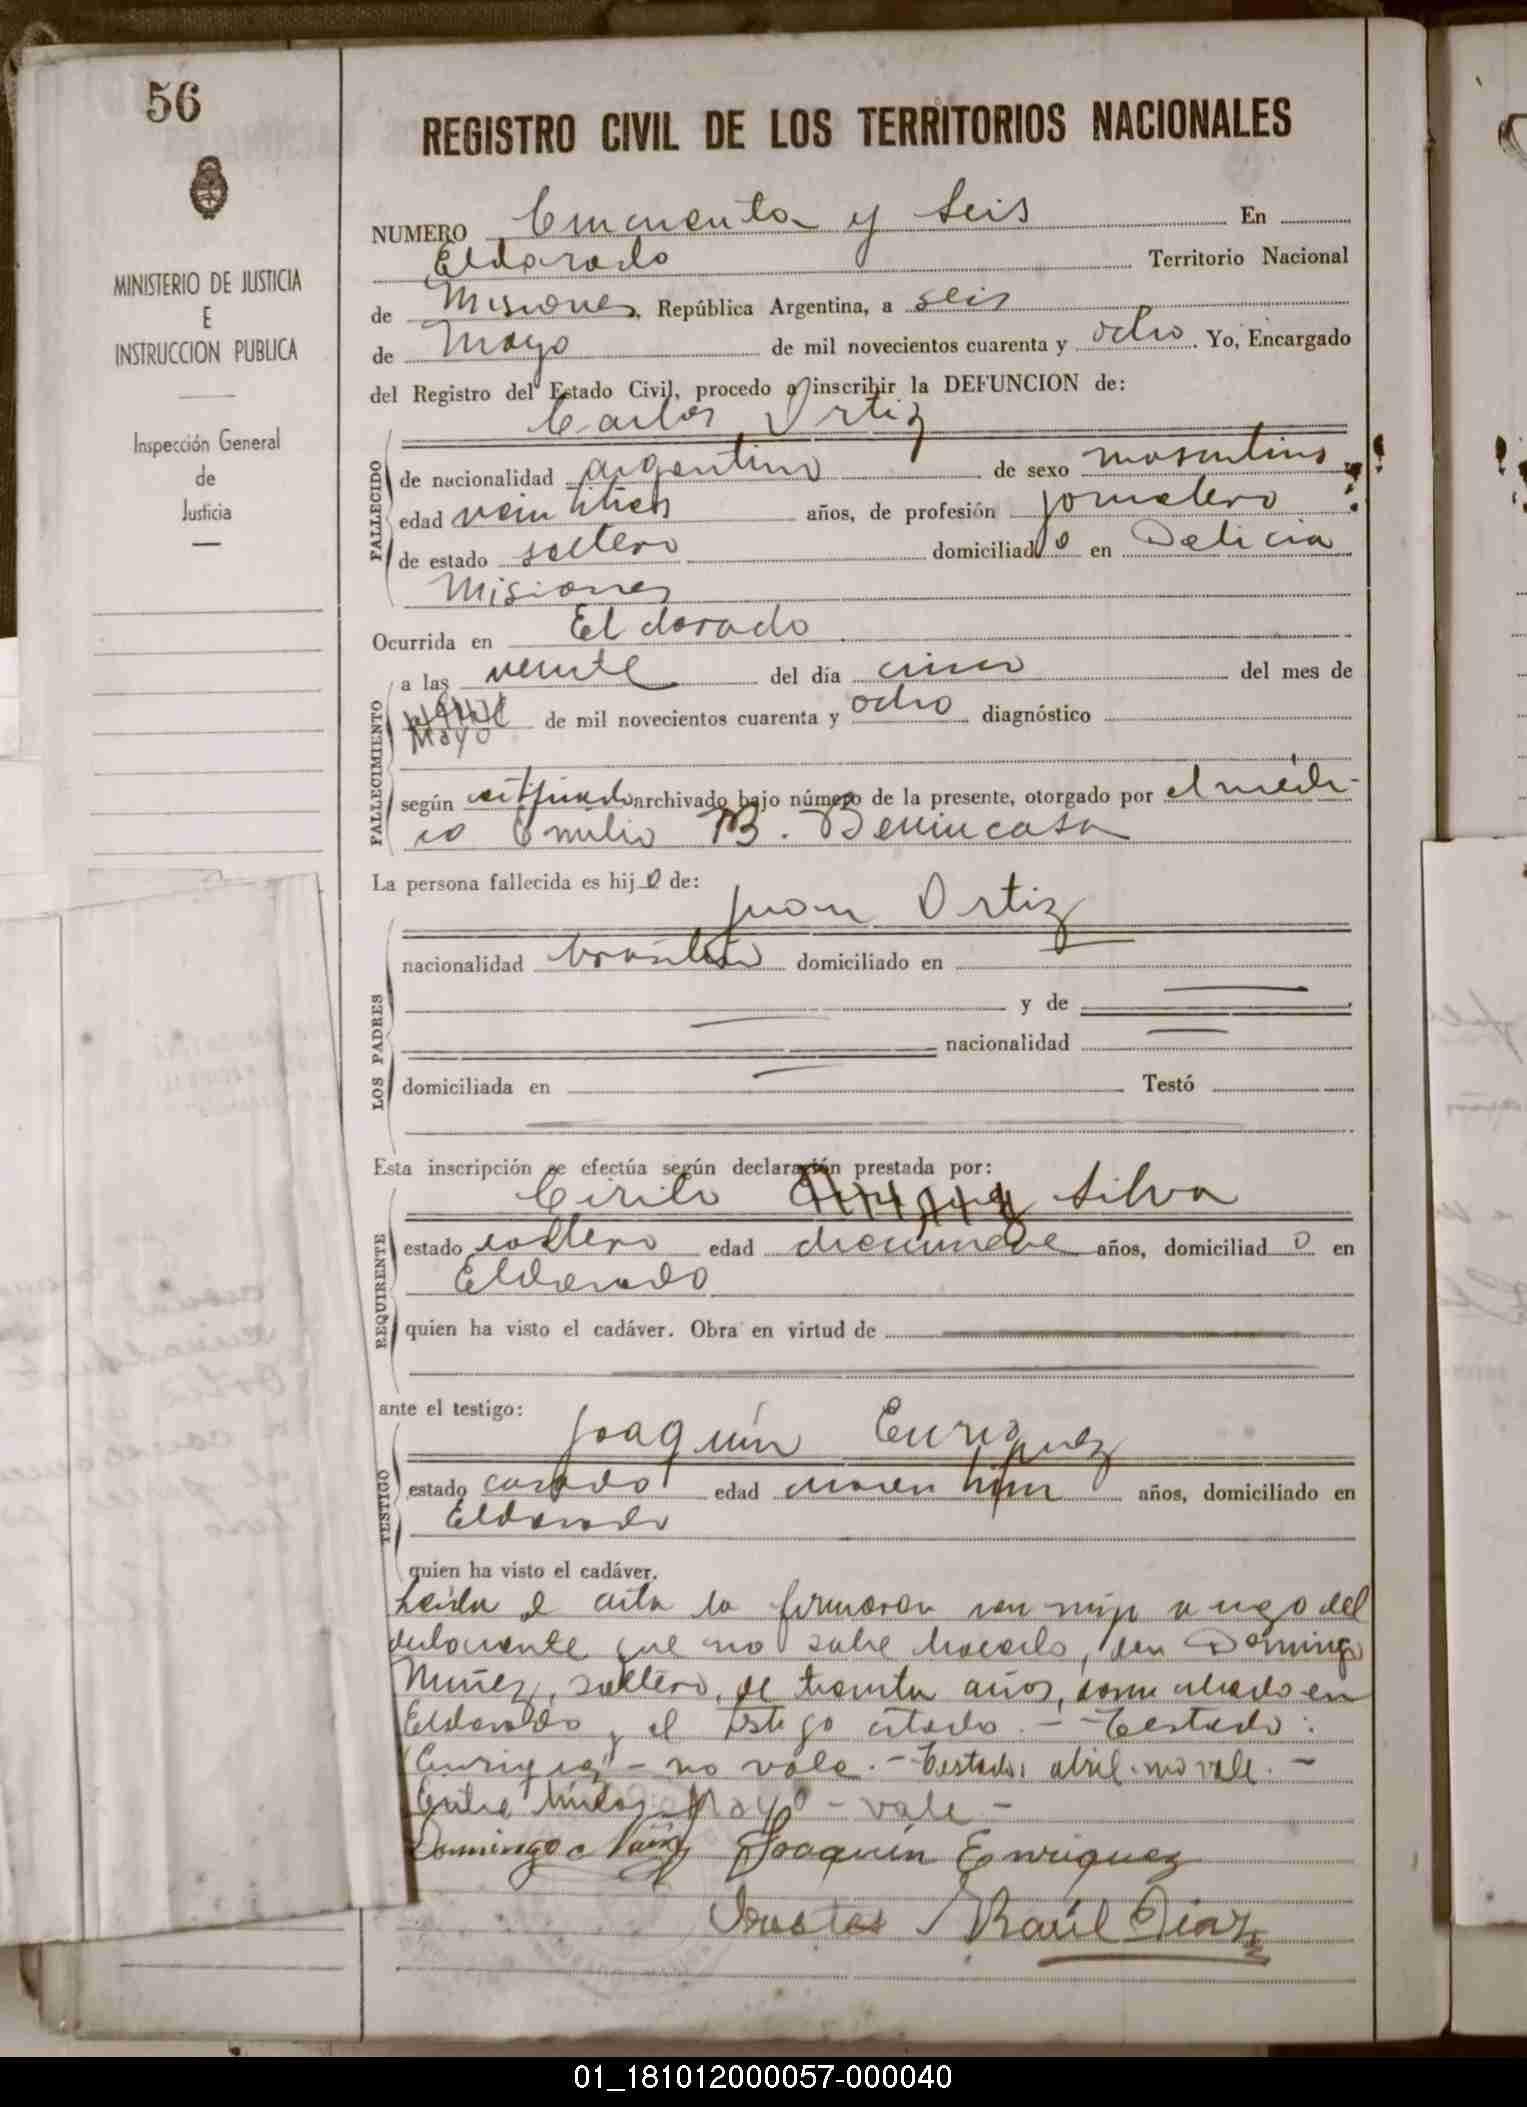 56
MINISTERIO DE JUSTICIA
E
INSTRUCCION PUBLICA
Inspección General
de
Justicia
REGISTRO CIVIL DE LOS TERRITORIOS NACIONALES
NUMERO Cincuenta y Seis En
Eldorado Territorio Nacional
de Misiones, República Argentina, a seis
de Mayo de mil novecientos cuarenta y ocho. Yo, Encargado
del Registro del Estado Civil, procedo a inscribir la DEFUNCION de:
Carlos Ortiz
FALLECIDO
de nacionalidad argentino de sexo masculino
edad veintitres años, de profesión jornalero
de estado soltero domiciliado en Delicia
Misiones
Ocurrida en Eldorado
FALLECIMIENTO
a las veinte del día cinco del mes de
abril de mil novecientos cuarenta y ocho diagnóstico
Mayo
según certificado archivado bajo número de la presente, otorgado por el médi-
co Emilio B. Benincasa
La persona fallecida es hijo de:
Juan Ortiz
LOS PADRES
nacionalidad brasilero domiciliado en
y de
nacionalidad
domiciliada en Testó
Esta inscripción se efectúa según declaración prestada por:
Cirilo Silva
REQUIRENTE
estado soltero edad diecinueve años, domiciliado en
Eldorado
quien ha visto el cadáver. Obra en virtud de
ante el testigo:
Joaquín Enriquez
TESTIGO
estado casado edad años, domiciliado en
Eldorado
quien ha visto el cadáver.
Leída el acta la firmaron conmigo a ruego del
declarante que no sabe hacerlo, don Domingo
Nuñez, soltero, de treinta años, domiciliado en
Eldorado y el testigo citado. - Testado:
Enriquez - no vale. - Testado: abril - no vale. -
Entre líneas: Mayo - vale -
Domingo Joaquín Enriquez
Raúl Diaz
01_181012000057-000040